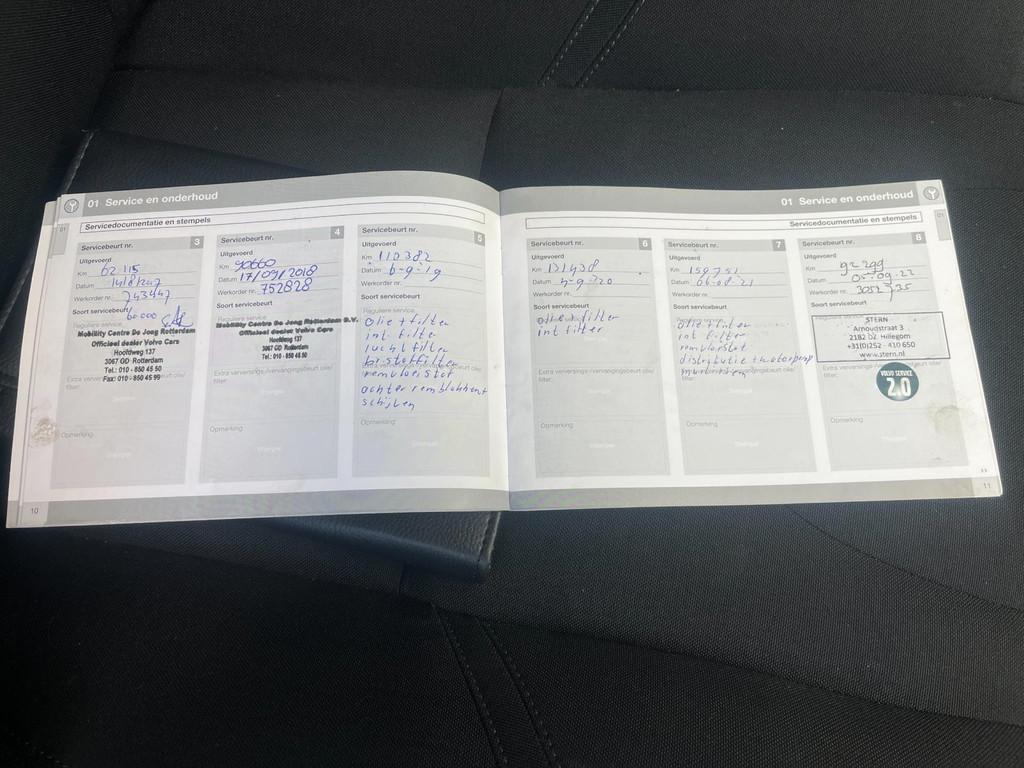 01 Service en onderhoud
01
Servicedocumentatie en stempels
Servicebeurt nr. 3
Uitgevoerd
Km 62 115
Datum
Werkorder nr. 743447
Soort servicebeurt
60.000
Reguliere service
Mobility Centre De Jong Rotterdam
Officieel dealer Volvo Cars
Hoofdweg 137
3067 GD Rotterdam
Tel.: 010 - 850 45 50
Fax: 010 - 850 45 99
Extra verversings-/vervangingsbeurt olie/
filter:
Opmerking
Stempel
10
Servicebeurt nr. 4
Uitgevoerd
Km 90660
Datum 17/09/2018
Werkorder nr. 752828
Soort servicebeurt
Mobility Centre De Jong Rotterdam B.V.
Officieel dealer Volvo Cars
Hoofdweg 137
3067 GD Rotterdam
Tel.: 010 - 850 45 50
Extra verversings-/vervangingsbeurt olie/
filter:
Opmerking
Stempel
Servicebeurt nr. 5
Uitgevoerd
Km 110382
Datum 6-9-19
Werkorder nr.
Soort servicebeurt
Reguliere service
olie + filter
int filter
lucht filter
br stoffilter
remvloeistof
achter remblokken +
schijven
Opmerking
Stempel
01 Service en onderhoud
01
Servicedocumentatie en stempels
Servicebeurt nr. 6
Uitgevoerd
Km 131438
Datum
Werkorder nr.
Soort servicebeurt
olie + filter
int filter
Extra verversings-/vervangingsbeurt olie/
filter:
Opmerking
Stempel
Servicebeurt nr. 7
Uitgevoerd
Km 159751
Datum 06-08-21
Werkorder nr.
Soort servicebeurt
Reguliere service
olie + filter
int filter
remvloeistof
distributie + waterpomp
multiriem
Opmerking
Stempel
Servicebeurt nr. 8
Uitgevoerd
Km
Datum 05-09-22
Werkorder nr.
Soort servicebeurt
STERN
Arnoudstraat 3
2182 DZ Hillegom
+31(0)252 - 410 650
www.stern.nl
Extra verversings-/vervangingsbeurt olie/
filter:
VOLVO SERVICE
2.0
Opmerking
Stempel
11